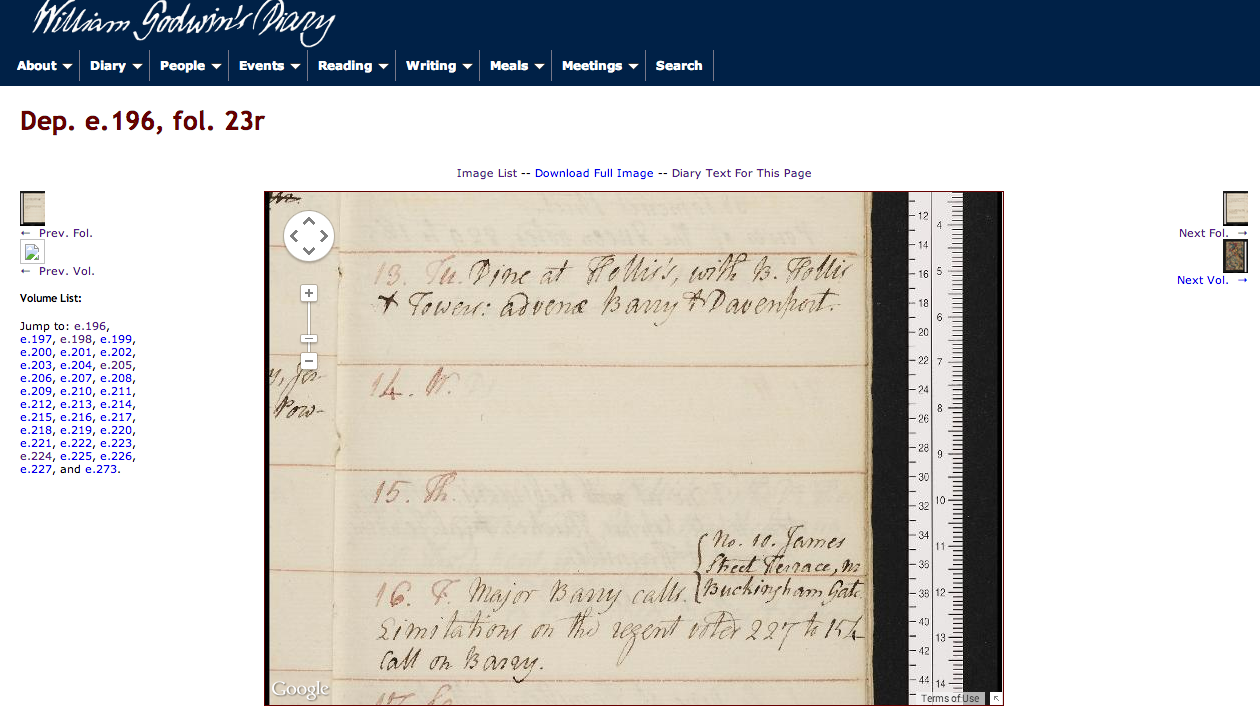 William Godwin's Diary
About Diary People Events Reading Writing Meals Meetings Search
Dep. e.196, fol. 23r
Image List -- Download Full Image -- Diary Text For This Page
← Prev. Fol.
← Prev. Vol.
Volume List:
Jump to: e.196,
e.197, e.198, e.199,
e.200, e.201, e.202,
e.203, e.204, e.205,
e.206, e.207, e.208,
e.209, e.210, e.211,
e.212, e.213, e.214,
e.215, e.216, e.217,
e.218, e.219, e.220,
e.221, e.222, e.223,
e.224, e.225, e.226,
e.227, and e.273.
13. Tu. Dine at Hollis's, with B. Hollis
& Towers: advenæ Barry & Davenport.
14. W.
15. Th.
{No. 10. James
Street Terrace,
Buckingham Gate
16. F. Major Barry calls.
Limitations on the regent voted 227 to 154
Call on Barry.
y, Jer-
Pow-
Google
12
14
16
18
20
22
24
26
28
30
32
34
36
38
40
42
44
4
5
6
7
8
9
10
11
12
13
14
Terms of Use
Next Fol. →
Next Vol. →